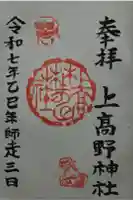 奉拝
上高野神社
令和七年乙巳年師走三日